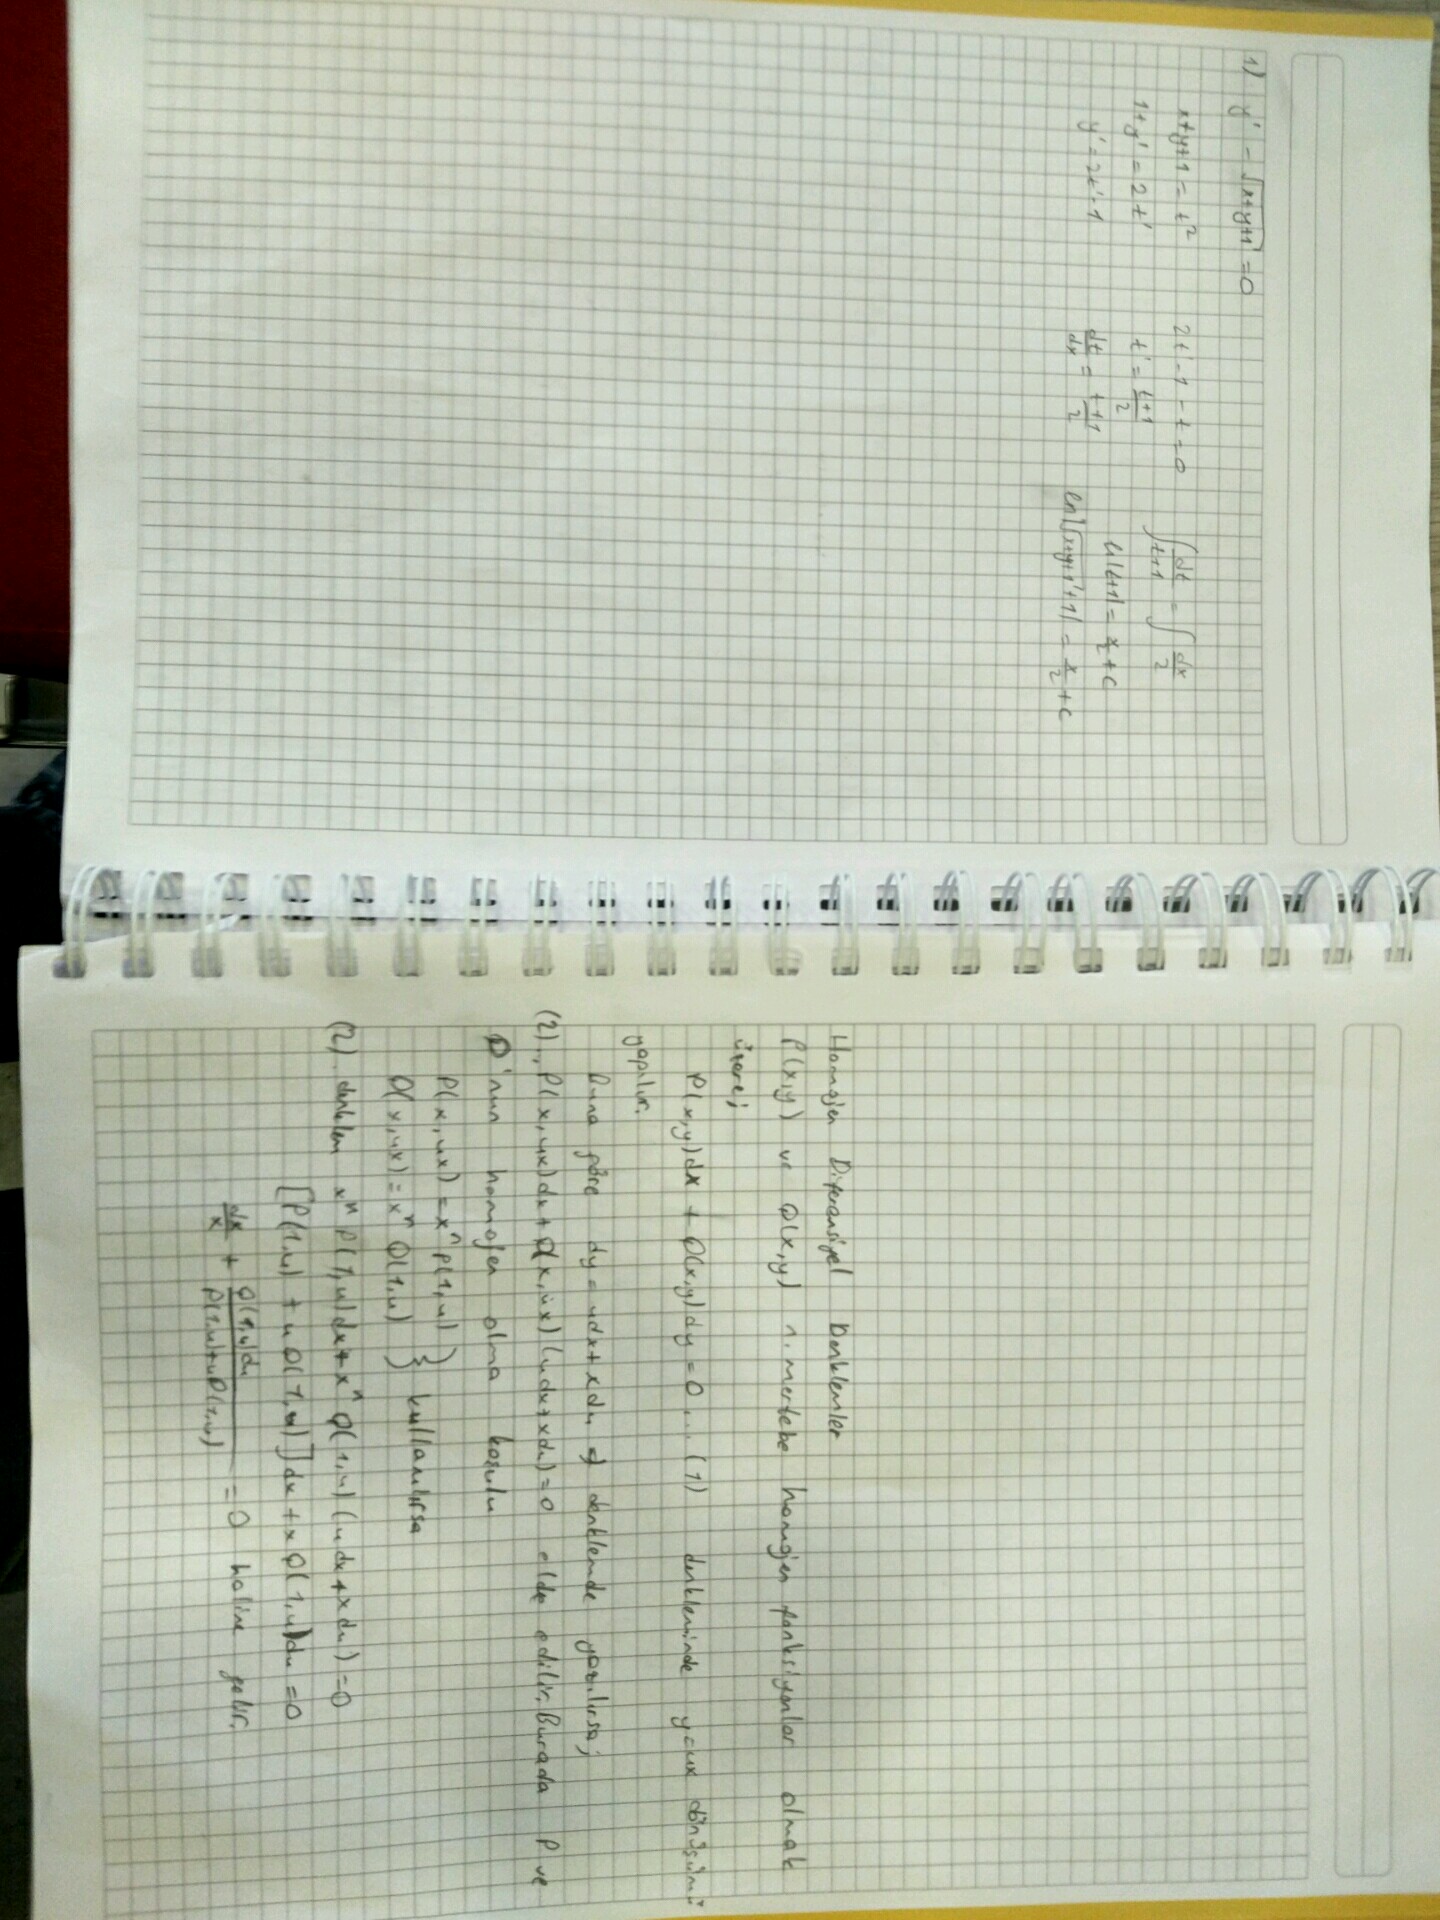 1) y' - √(x+y+1) = 0
x+y+1 = t²
1+y' = 2t'
y' = 2t'-1
2t'-1-t=0
t' = (t+1)/2
dt/dx = (t+1)/2
∫ dt/(t+1) = ∫ dx/2
ln|t+1| = x/2 + c
ln|√(x+y+1) + 1| = x/2 + c
Homojen Diferensiyel Denklemler
P(x,y) ve Q(x,y) 1. mertebe homojen fonksiyonlar olmak
üzere;
P(x,y)dx + Q(x,y)dy = 0 ... (1) denkleminde y=ux dönüşümü
yapılır.
Buna göre dy = udx + xdu ⇒ denklemde yazılırsa;
(2).. P(x,ux)dx + Q(x,ux)(udx+xdu)=0 elde edilir. Burada P ve
Q'nun homojen olma koşulu
P(x,ux) = xⁿ P(1,u) }
Q(x,ux) = xⁿ Q(1,u) } kullanılırsa
(2). denklem xⁿ P(1,u)dx + xⁿ Q(1,u)(udx+xdu) = 0
[P(1,u) + uQ(1,u)]dx + xQ(1,u)du = 0
dx/x + Q(1,u)du/(P(1,u)+uP(1,u)) = 0 haline gelir.